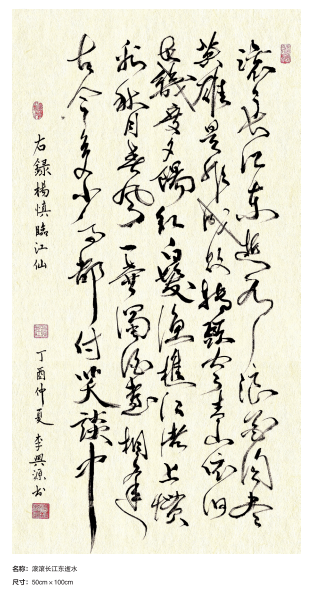 滚滚长江东逝水浪花淘尽
英雄是非成敗转頭空青山依旧
在幾度夕陽红白髮渔樵江渚上慣
看秋月春风一壶濁酒喜相逢
古今多少事都付笑談中
右録楊慎臨江仙
丁酉仲夏李興源书
名称：滚滚长江东逝水
尺寸：50cm×100cm